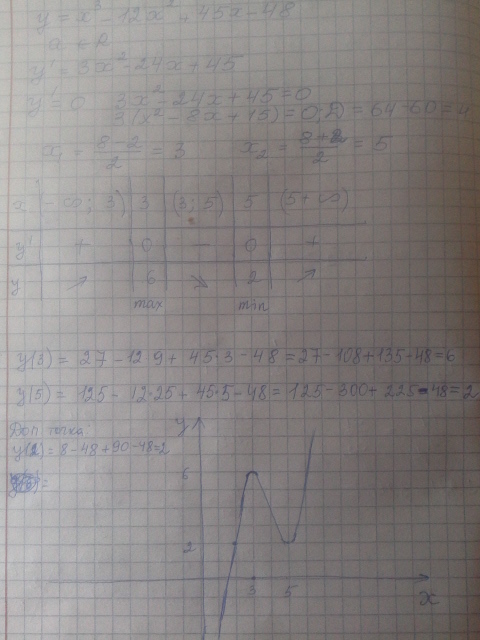 y = x³ - 12x² + 45x - 48
x ∈ R
y' = 3x² - 24x + 45
y' = 0 3x² - 24x + 45 = 0
3(x² - 8x + 15) = 0; D = 64 - 60 = 4
x₁ = (8-2)/2 = 3 x₂ = (8+2)/2 = 5
x | -∞; 3) | 3 | (3; 5) | 5 | (5 + ∞)
y' | + | 0 | - | 0 | +
y | ↗ | 6 | ↘ | 2 | ↗
max min
y(3) = 27 - 12·9 + 45·3 - 48 = 27 - 108 + 135 - 48 = 6
y(5) = 125 - 12·25 + 45·5 - 48 = 125 - 300 + 225 - 48 = 2
Доп точка:
y(2) = 8 - 48 + 90 - 48 = 2
y
6
2
3 5
x